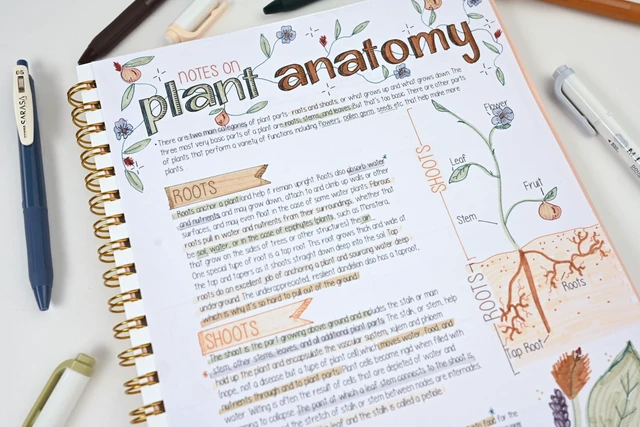 SARASA
NOTES ON
plant anatomy
• There are two main categories of plant parts - roots and shoots, or what grows up and what grows down. The
three most very basic parts of a plant are roots, stems, and leaves. But that's too basic. There are other parts
of plants that perform a variety of functions including flowers, pollen, germ, seeds, etc. that help make more
plants.
ROOTS
Roots anchor a plant and help it remain upright. Roots also absorb water
and nutrients and may grow down, attach to and climb up walls or other
surfaces, and may even float in the case of some water plants. Fibrous
roots pull in water and nutrients from their surroundings, whether that
be soil, water, or in the case of epiphytes plants, such as Monstera,
that grow on the sides of trees or other structures) the air.
One special type of root is a tap root. This root grows thick and wide at
the top and tapers as it shoots straight down deep into the soil. Tap
roots do an excellent job of anchoring a plant and sourcing water deep
underground. The underappreciated, resilient dandelion also has a taproot,
which is why it's so hard to pull out of the ground.
SHOOTS
The shoot is the part growing above ground and includes the stalk or main
stem, other stems, leaves, and all additional plant parts. The stalk, or stem, help
hold up the plant and encapsulate the vascular system, xylem and phloem
(nope, not a disease but a type of plant cell) which moves water, food, and
nutrients through and to plant parts. Plant cells become rigid when filled with
water. Wilting is often the result of cells that are depleted of water and
starting to collapse. The point at which a leaf stem connects to the shoot is
and the stretch of stalk or stem between nodes is internodes.
and the leaf and the stalk is called a petiole
SHOOTS
Flower
Leaf
Fruit
Stem
ROOTS
Roots
Tap Root